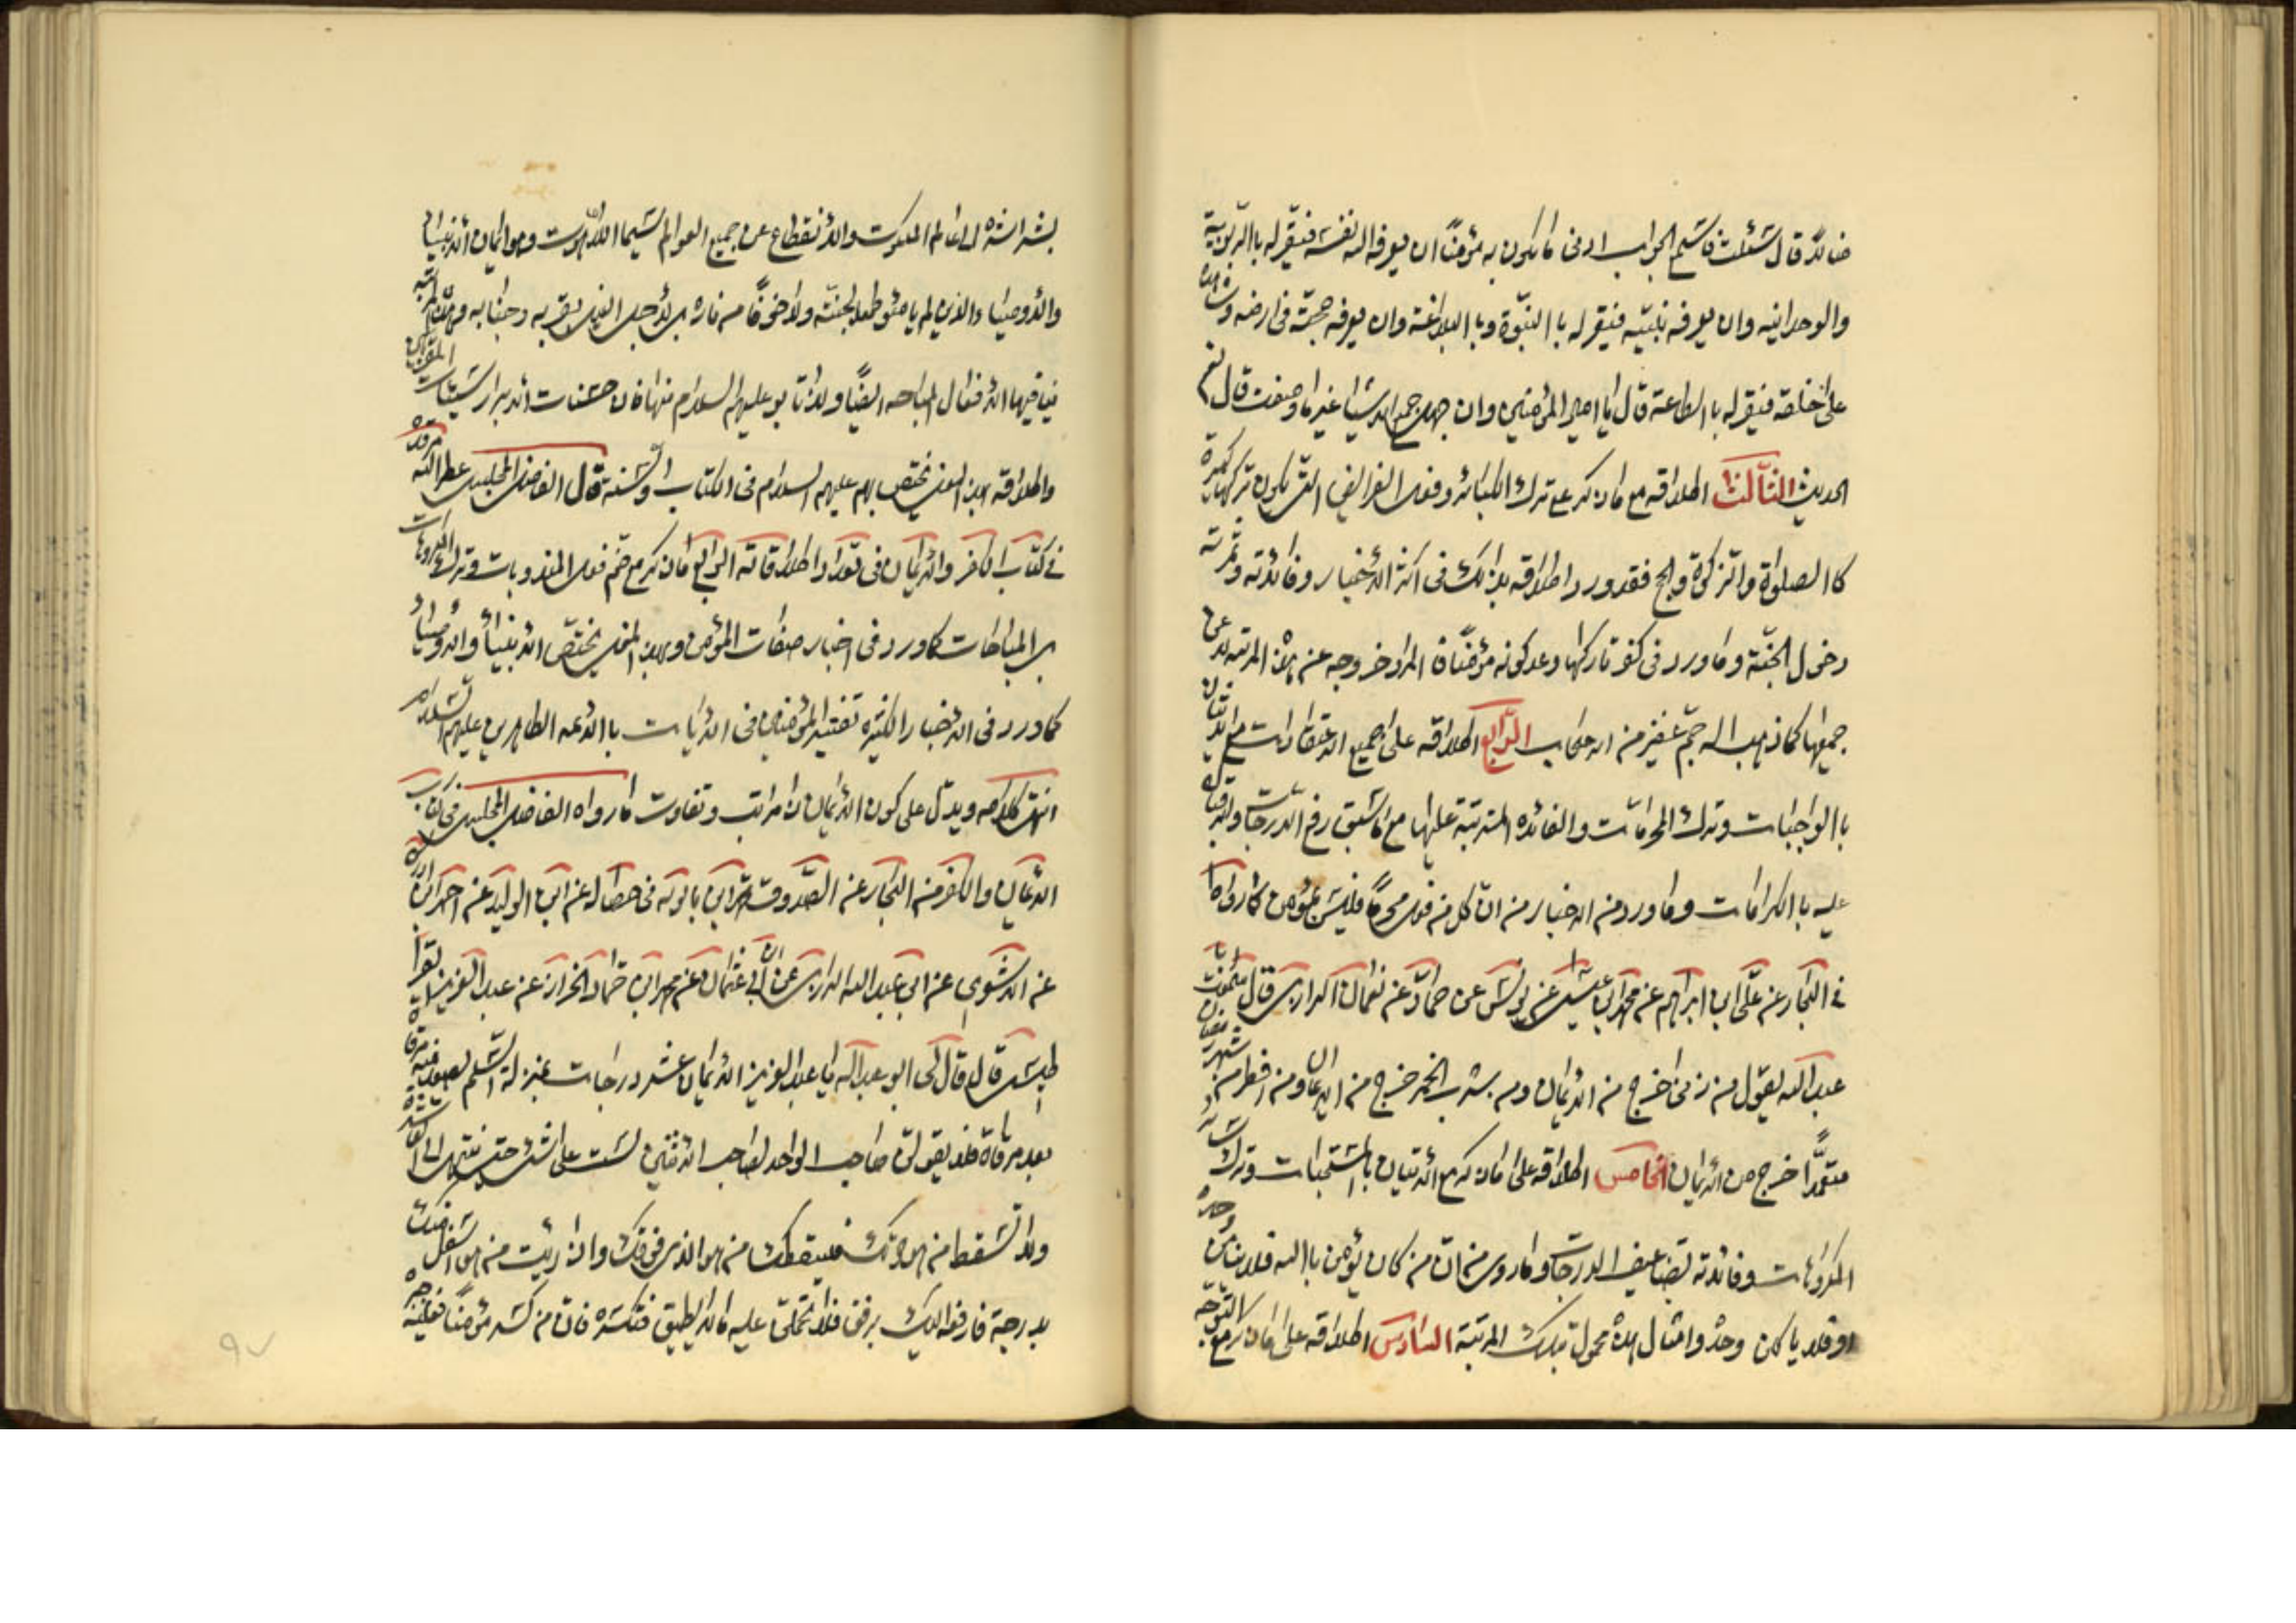 ضالّاً قال سئلت فاسمع الجواب ادنى ما يكون به مؤمناً ان يعرفه الله نفسه فيقرّ له باالرّبوبيّة
والوحدانيه وان يعرفه نبيّه فيقرّ له باالنبّوة وباالبلاغة وان يعرفه حجّته فى ارضه وشاهده
على خلقه فيقرّ له باالطاعة قال يا امير المؤمنين وان جهل جميع الاشياء غير ما وصفت قال نعم
الحديث الثّالث اطلاقه مع ما ذكر على ترك الكبائر وفعل الفرائض التى يكون تركها كبيرة
كاالصلوة والزكوة والحج فقد ورد اطلاقه بذالك فى اكثر الأخبار وفائدته وثمرته
دخول الجنّة وما ورد فى كفر تاركها وعدم كونه مؤمناً فاالمراد خروجه عن هذه المرتبة لا عن
جميعها كما ذهب اليه جمّ غفير من الاصحاب الرّابع اطلاقه على جميع الاعتقادات مع الاتيان
باالواجبات وترك المحرّمات والفائده المترتبة عليها مع ما سبق رفع الدّرجات
عليه باالكرامات وما ورد من الاخبار من انّ كل من فعل محرماً فليس بمؤمن كما رواه
فى البحار عن علّى ابن ابراهيم عن محمد ابن عيسى عن يونس عن حمّاد عن نعمان الرازى قال سمعت ابا
عبدالله يقول من زنى خرج من الأيمان ومن يشرب الخمر خرج من الايمان ومن افطر من شهر رمضان
متعمّداً خرج من الأيمان الخامس اطلاقه على ما ذكر مع الأتيان باالمستحبات وترك
المكروهات وفائدته تضاعيف الدرجات وما روى من انّ من كان يؤمن باالله فلا ينامن وحده
او فلا ياكلن وحده وامثال هذه محمول بتلك المرتبة السّادس اطلاقه على ما ذكر مع التوجّه
بشراشره الى عالم الملكوت والأنقطاع عن جميع العوالم سيّما النّاسوت وهو ايمان الأنبياء
والأوصياء والذين لم يؤمنوا طمعا لجنّته ولا خوفاً من ناره بل لأجل التقرب به وجنابه وهذه المرتبة
ينافيها الأفعال المباحه ايضاً ولذا تابوا عليهم السلام منها فان حسنات الأبرار سيّئات المقرّبين
واطلاقه بهذا المعنى يختص بهم عليهم السلام فى الكتاب والسّنة قال الفاضل المجلسى عطر الله مرقده
فى كتاب الكفر والأيمان فى تعداد اطلاقاته الرّابع ما ذكر مع ضّم فعل المندوبات وترك المكروهات
بل المباحات كما ورد فى اخبار صفات المؤمن وبهذا المعنى يختصّ الأنبياء والأوصياء
كما ورد فى الأخبار الكثيره تفسير المؤمنين فى الأيات باالأئمه الطاهرين عليهم السّلام
انتهى كلامه ويدّل على كون الأيمان ذا مراتب وتفاوت ما رواه الفاضل المجلسى فى كتاب
الأيمان والكفر من البحار عن الصّدوق محمد ابن بابويه فى خصاله عن ابن الوليد عن احمد ابن ادريس
عن الأشعرى عن ابى عبدالله الرازى عن ابن ابى عثمان عن محمد ابن حمّاد الخزاز عن عبدالعزيز القراطيسى
قال قال لى ابو عبدالله يا عبدالعزيز الأيمان عشر درجات بمنزلة السّلّم يصعد منه مرقاة
بعد مرقاة فلا يقولنّ صاحب الواحد لصاحب الأثنين لست على شئ حتى ينتهى الى العاشرة
ولا تسقط من هو دونك فيسقطك من هو الذى فوقك واذا رئيت من هو اسفل منك
بدرجة فارفعه اليك برفق فلا تحملنّ عليه ما لا يطيق فتكسره فانّ من كسر مؤمناً فعليه جبره
٩٧